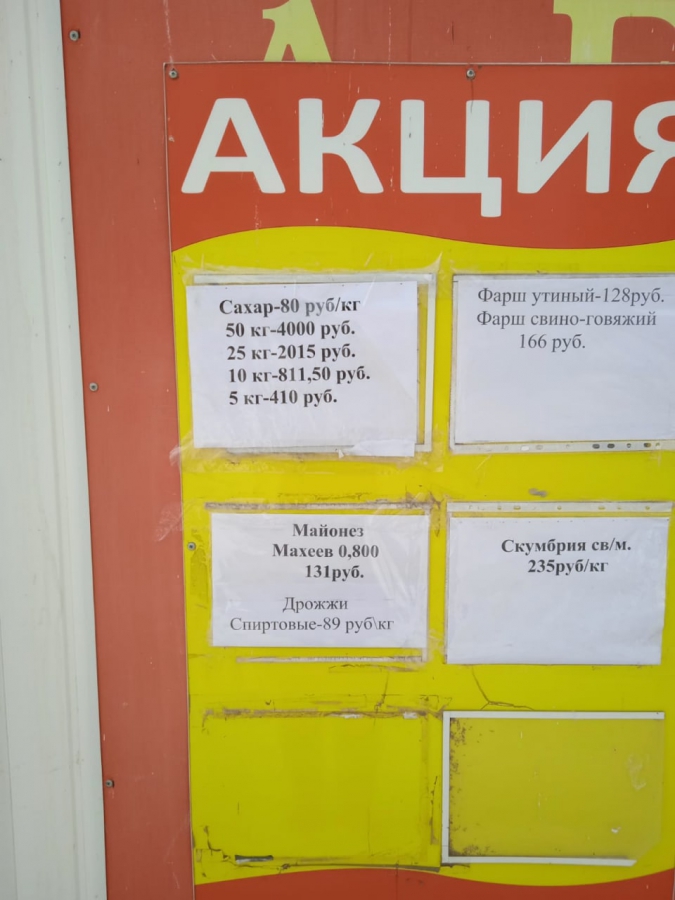 АКЦИЯ
Сахар-80 руб/кг
50 кг-4000 руб.
25 кг-2015 руб.
10 кг-811,50 руб.
5 кг-410 руб.
Фарш утиный-128руб.
Фарш свино-говяжий
166 руб.
Майонез
Махеев 0,800
131руб.
Дрожжи
Спиртовые-89 руб\кг
Скумбрия св/м.
235руб/кг